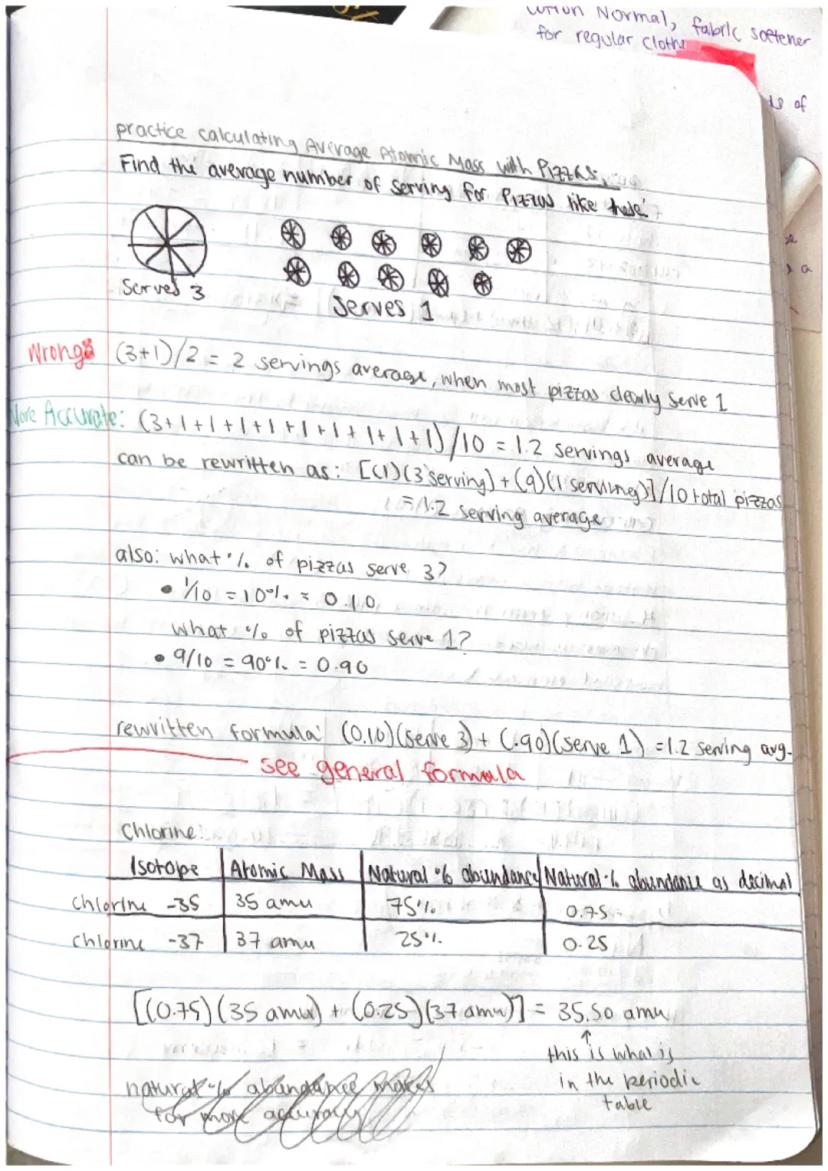 Normal, fabric softener
for regular
practice calculating Average Atomic Mass with Pizzas.
Find the average number of serving for Pizzas like these:
Serves 3
Serves 1
Wrong: (3+1)/2 = 2 servings average, when most pizzas clearly serve 1
More Accurate: (3+1+1+1+1+1+1+1+1+1)/10 = 1.2 servings average
can be rewritten as: [(1)(3 serving) + (9)(1 serving)]/10 total pizzas
= 1.2 serving average
also: what % of pizzas serve 3?
• 1/10 = 10% = 0.10
What % of pizzas serve 1?
• 9/10 = 90% = 0.90
rewritten formula: (0.10)(serve 3) + (.90)(serve 1) = 1.2 serving avg.
see general formula
Chlorine:
Isotope | Atomic Mass | Natural % abundance | Natural % abundance as decimal
Chlorine -35 | 35 amu | 75% | 0.75
Chlorine -37 | 37 amu | 25% | 0.25
[(0.75)(35 amu) + (0.25)(37 amu)] = 35.50 amu
↑
this is what is
in the periodic
table
natural % abundance makes
for more accuracy